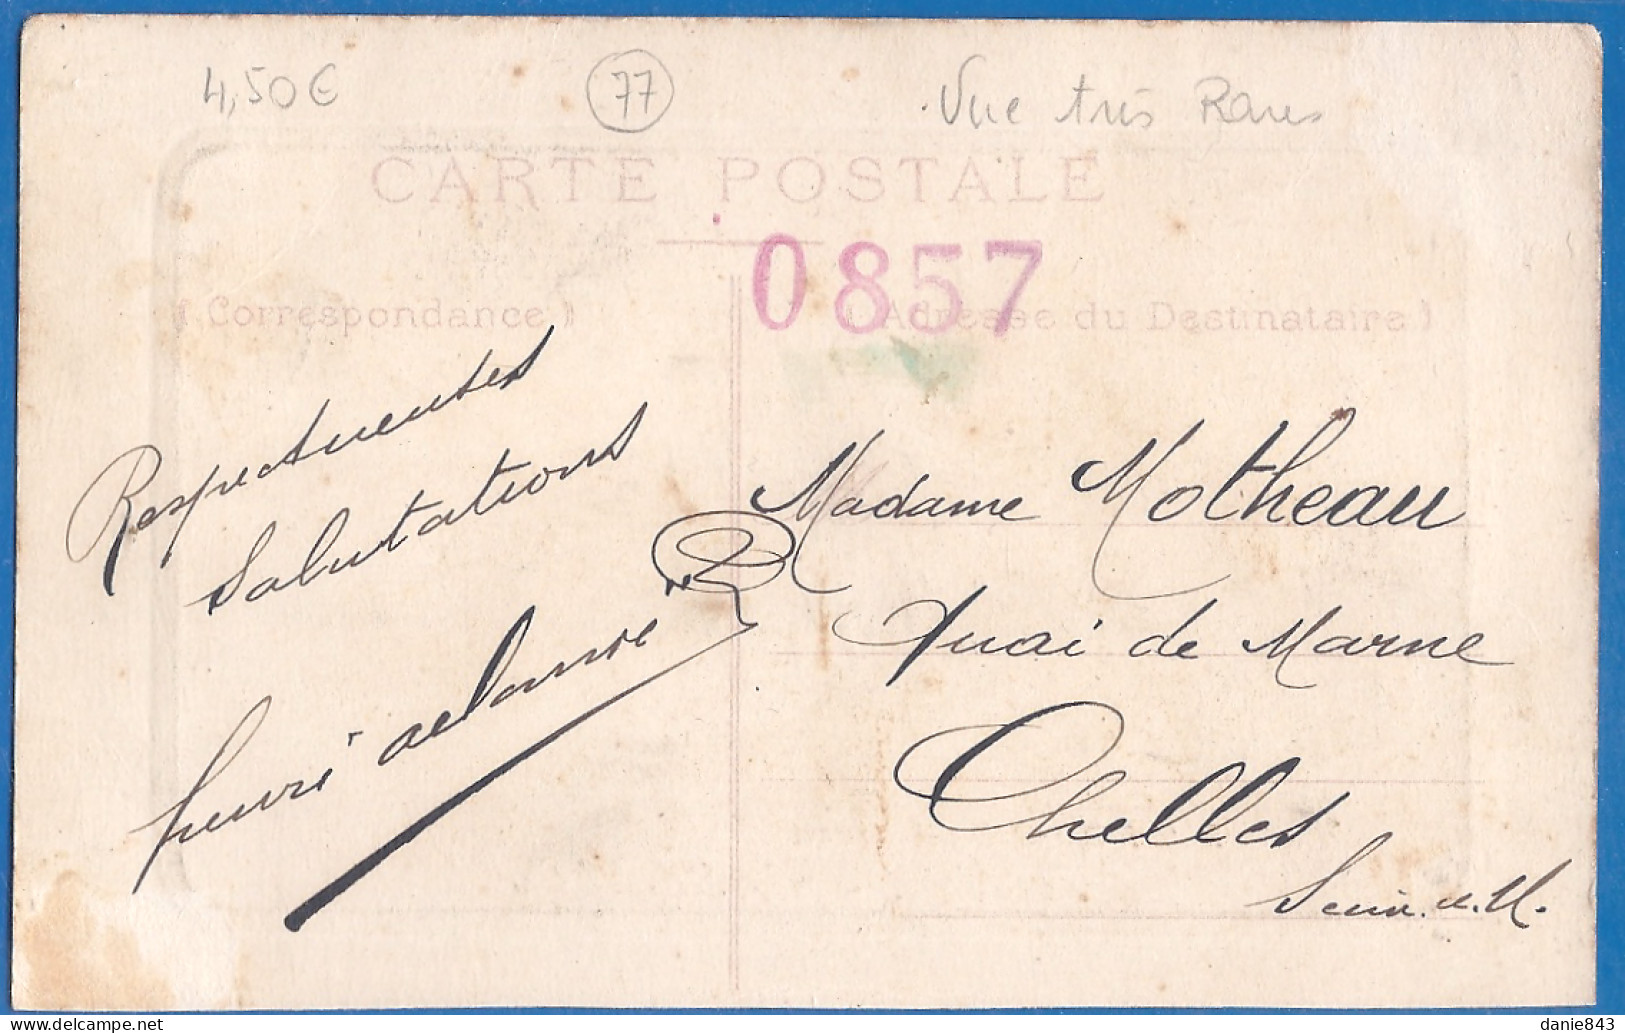 4,50€
77
Vue très Rares
CARTE POSTALE
0857
(Correspondance)
(Adresse du Destinataire)
Respectueuses
Salutations
Madame Motheau
Quai de Marne
Chelles
Seine.u.M.